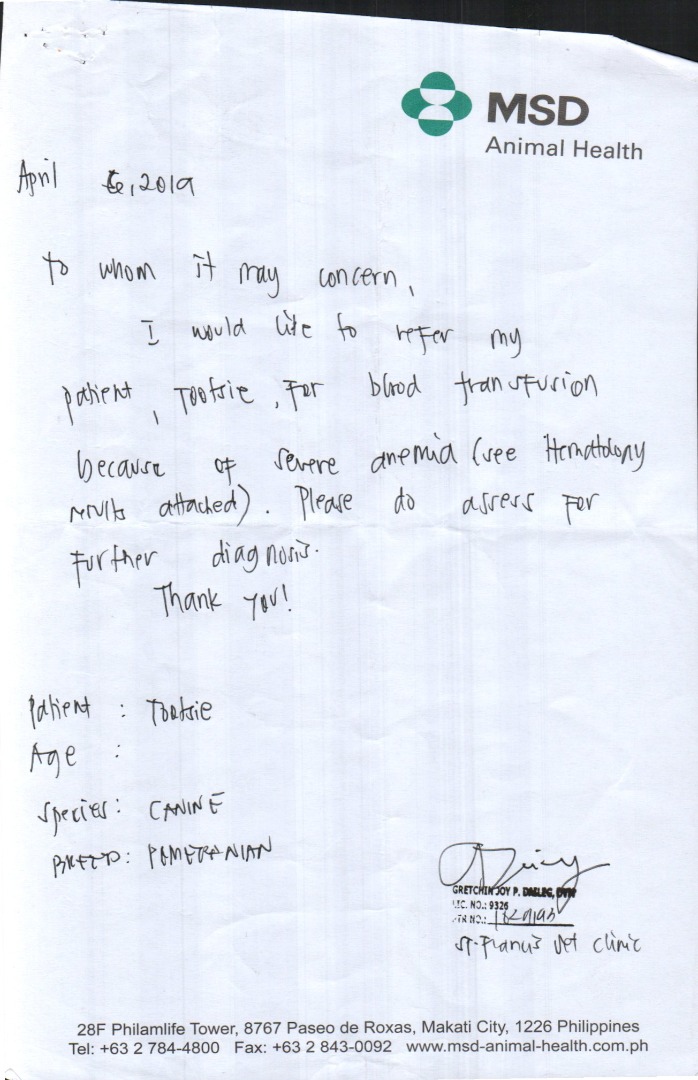 MSD
Animal Health
April 6, 2019
To whom it may concern,
I would like to refer my
patient, Tootsie, for blood transfusion
because of severe anemia (see Hematology
results attached). Please do assess for
further diagnosis.
Thank you!
Patient : Tootsie
Age :
Species: CANINE
BREED: POMERANIAN
GRETCHIN JOY P. DVM
LIC. NO.: 9326
PTR NO.:
St. Francis Vet Clinic
28F Philamlife Tower, 8767 Paseo de Roxas, Makati City, 1226 Philippines
Tel: +63 2 784-4800 Fax: +63 2 843-0092 www.msd-animal-health.com.ph